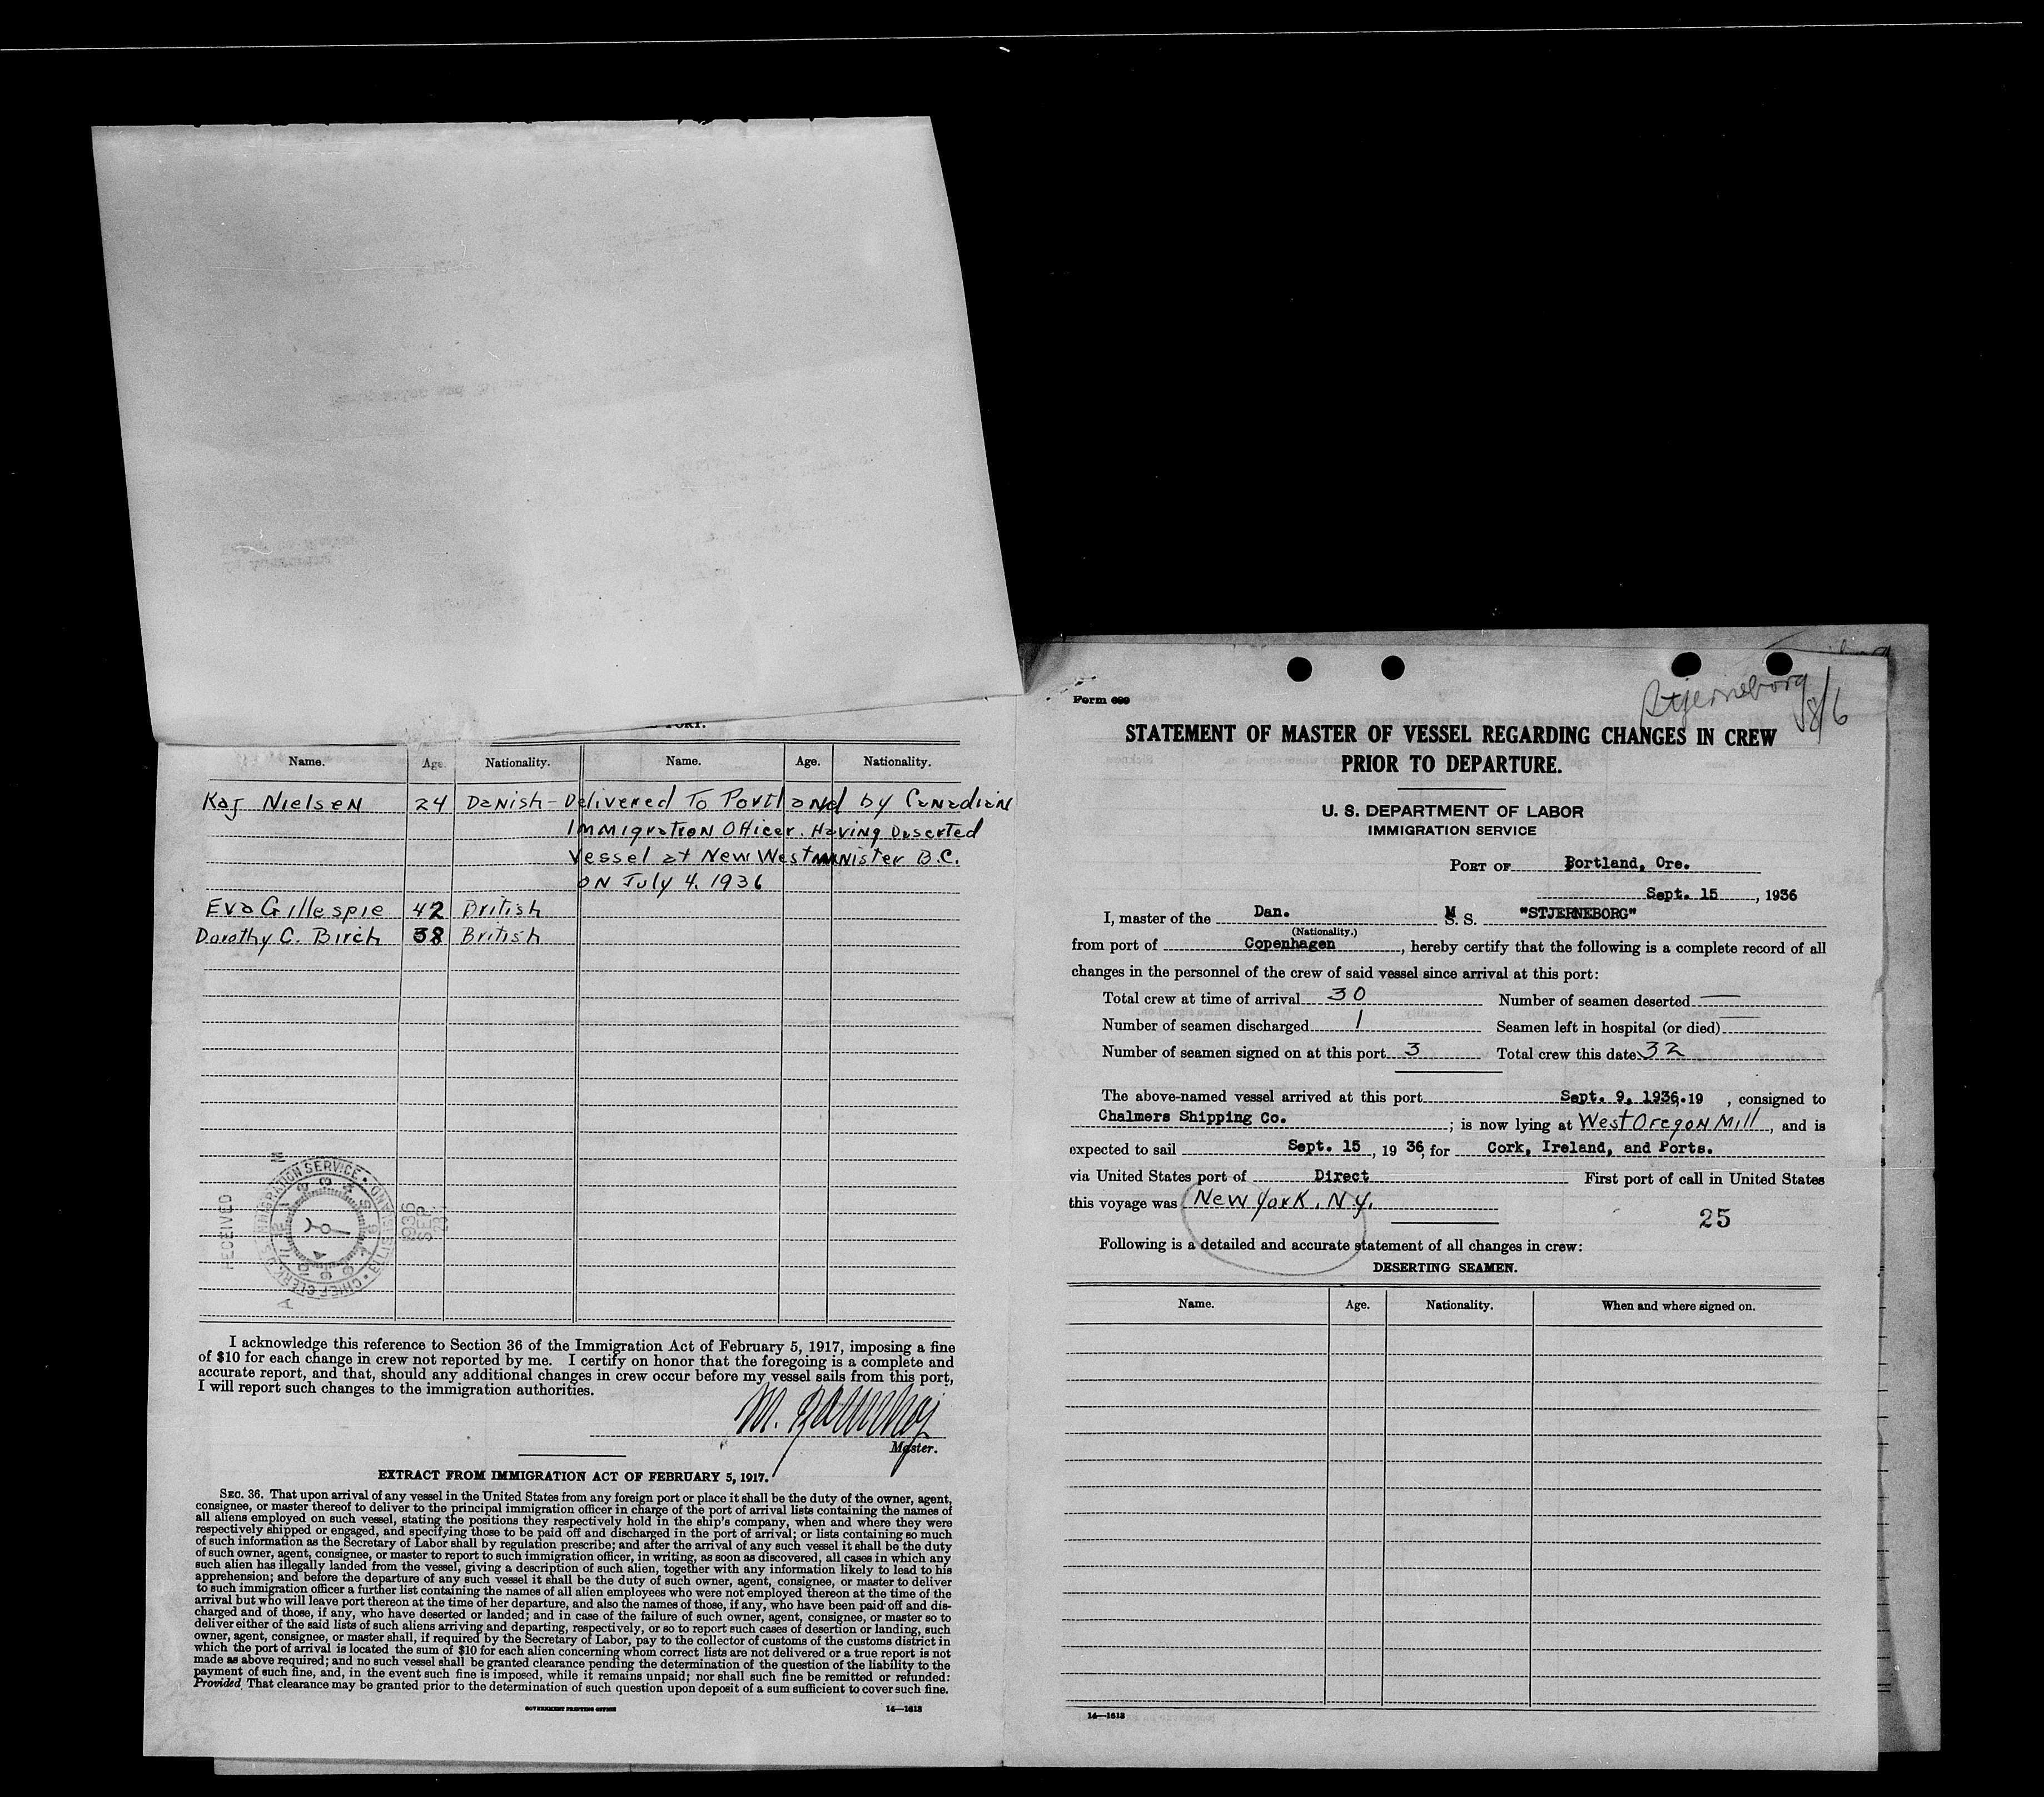 PORT.
Name. Age. Nationality. Name. Age. Nationality.
Kaj Nielsen 24 Danish - Delivered To Portland by Canadian
Immigration Officer. Having Deserted
Vessel at New Westminister B.C.
on July 4. 1936
Eva Gillespie 42 British
Dorothy C. Birch 38 British
RECEIVED
IMMIGRATION SERVICE
1936
SEP
I acknowledge this reference to Section 36 of the Immigration Act of February 5, 1917, imposing a fine
of $10 for each change in crew not reported by me. I certify on honor that the foregoing is a complete and
accurate report, and that, should any additional changes in crew occur before my vessel sails from this port,
I will report such changes to the immigration authorities.
M.
Master.
EXTRACT FROM IMMIGRATION ACT OF FEBRUARY 5, 1917.
SEC. 36. That upon arrival of any vessel in the United States from any foreign port or place it shall be the duty of the owner, agent,
consignee, or master thereof to deliver to the principal immigration officer in charge of the port of arrival lists containing the names of
all aliens employed on such vessel, stating the positions they respectively hold in the ship's company, when and where they were
respectively shipped or engaged, and specifying those to be paid off and discharged in the port of arrival; or lists containing so much
of such information as the Secretary of Labor shall by regulation prescribe; and after the arrival of any such vessel it shall be the duty
of such owner, agent, consignee, or master to report to such immigration officer, in writing, as soon as discovered, all cases in which any
such alien has illegally landed from the vessel, giving a description of such alien, together with any information likely to lead to his
apprehension; and before the departure of any such vessel it shall be the duty of such owner, agent, consignee, or master to deliver
to such immigration officer a further list containing the names of all alien employees who were not employed thereon at the time of the
arrival but who will leave port thereon at the time of her departure, and also the names of those, if any, who have been paid off and dis-
charged and of those, if any, who have deserted or landed; and in case of the failure of such owner, agent, consignee, or master so to
deliver either of the said lists of such aliens arriving and departing, respectively, or so to report such cases of desertion or landing, such
owner, agent, consignee, or master shall, if required by the Secretary of Labor, pay to the collector of customs of the customs district in
which the port of arrival is located the sum of $10 for each alien concerning whom correct lists are not delivered or a true report is not
made as above required; and no such vessel shall be granted clearance pending the determination of the question of the liability to the
payment of such fine, and, in the event such fine is imposed, while it remains unpaid; nor shall such fine be remitted or refunded:
Provided, That clearance may be granted prior to the determination of such question upon deposit of a sum sufficient to cover such fine.
GOVERNMENT PRINTING OFFICE 14—1613
Form 689
Stjerneborg
8/6
STATEMENT OF MASTER OF VESSEL REGARDING CHANGES IN CREW
PRIOR TO DEPARTURE.
U. S. DEPARTMENT OF LABOR
IMMIGRATION SERVICE
PORT OF Portland, Ore.
Sept. 15, 1936
I, master of the Dan. M S. S. "STJERNEBORG"
(Nationality.)
from port of Copenhagen, hereby certify that the following is a complete record of all
changes in the personnel of the crew of said vessel since arrival at this port:
Total crew at time of arrival 30 Number of seamen deserted —
Number of seamen discharged 1 Seamen left in hospital (or died) —
Number of seamen signed on at this port 3 Total crew this date 32
The above-named vessel arrived at this port Sept. 9, 1936. 19 , consigned to
Chalmers Shipping Co. ; is now lying at West Oregon Mill, and is
expected to sail Sept. 15, 1936, for Cork, Ireland, and Ports.
via United States port of Direct First port of call in United States
this voyage was New York. N.Y.
25
Following is a detailed and accurate statement of all changes in crew:
DESERTING SEAMEN.
Name. Age. Nationality. When and where signed on.
14—1613